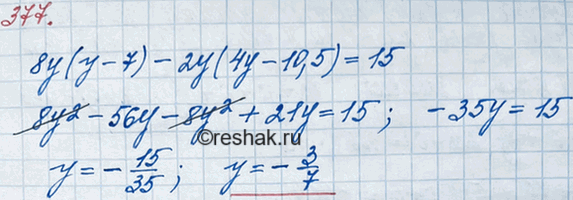 377.
8y(y-7)-2y(4y-10,5)=15
8y²-56y-8y²+21y=15; -35y=15
©reshak.ru
y=-15/35; y=-3/7